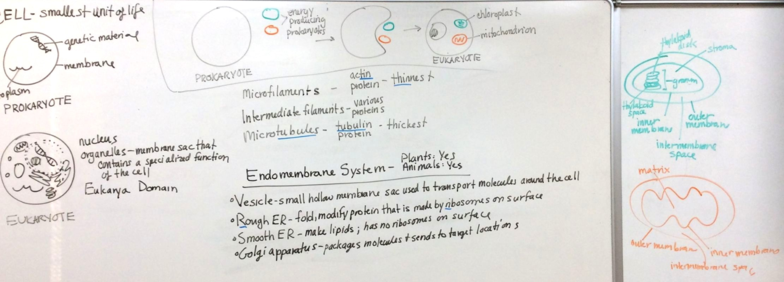 ELL - smallest unit of life
genetic material
membrane
plasm
PROKARYOTE
energy
producing
prokaryotes
PROKARYOTE
chloroplast
mitochondrion
EUKARYOTE
Microfilaments - actin protein - thinnest
Intermediate filaments - various proteins
Microtubules - tubulin protein - thickest
nucleus
organelles - membrane sac that
contains a specialized function
of the cell
Eukarya Domain
EUKARYOTE
Endomembrane System - Plants: Yes
Animals: Yes
• Vesicle - small hollow membrane sac used to transport molecules around the cell
• Rough ER - fold, modify protein that is made by ribosomes on surface
• Smooth ER - make lipids; has no ribosomes on surface
• Golgi apparatus - packages molecules & sends to target locations
thylakoid
disk
stroma
granum
thylakoid
space
inner
membrane
outer
membrane
intermembrane
space
matrix
outer membrane
inner membrane
intermembrane